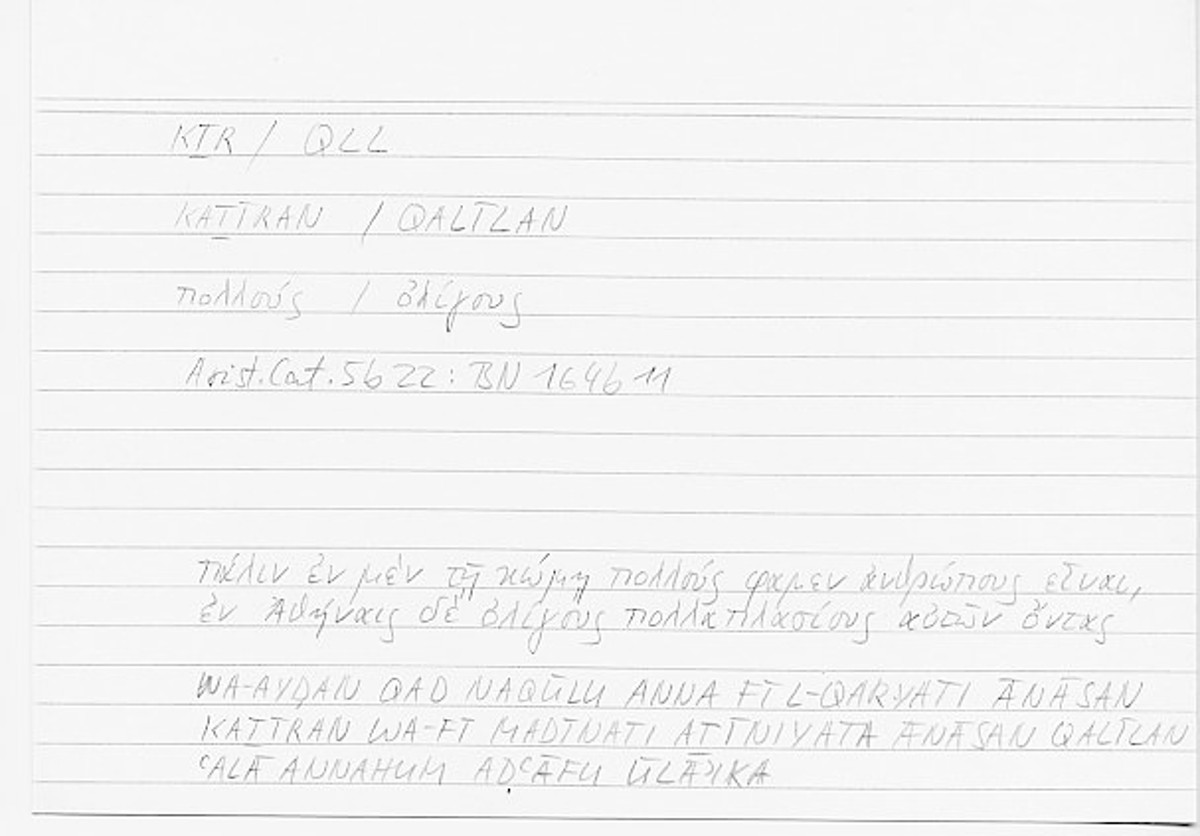 KṮR / QLL
KAṮĪRAN / QALĪLAN
πολλούς / ὀλίγους
Arist. Cat. 5b 22 : BN 164b 11
πάλιν ἐν μὲν τῇ κώμῃ πολλούς φαμεν ἀνθρώπους εἶναι,
ἐν Ἀθήναις δὲ ὀλίγους πολλαπλασίους αὐτῶν ὄντας
WA-AYḌAN QAD NAQŪLU ANNA FĪ L-QARYATI ĀNĀSAN
KAṮĪRAN WA-FĪ MADĪNATI ATĪNIYATA ĀNĀSAN QALĪLAN
ʿALĀ ANNAHUM AḌʿĀFU ŪLĀʾIKA